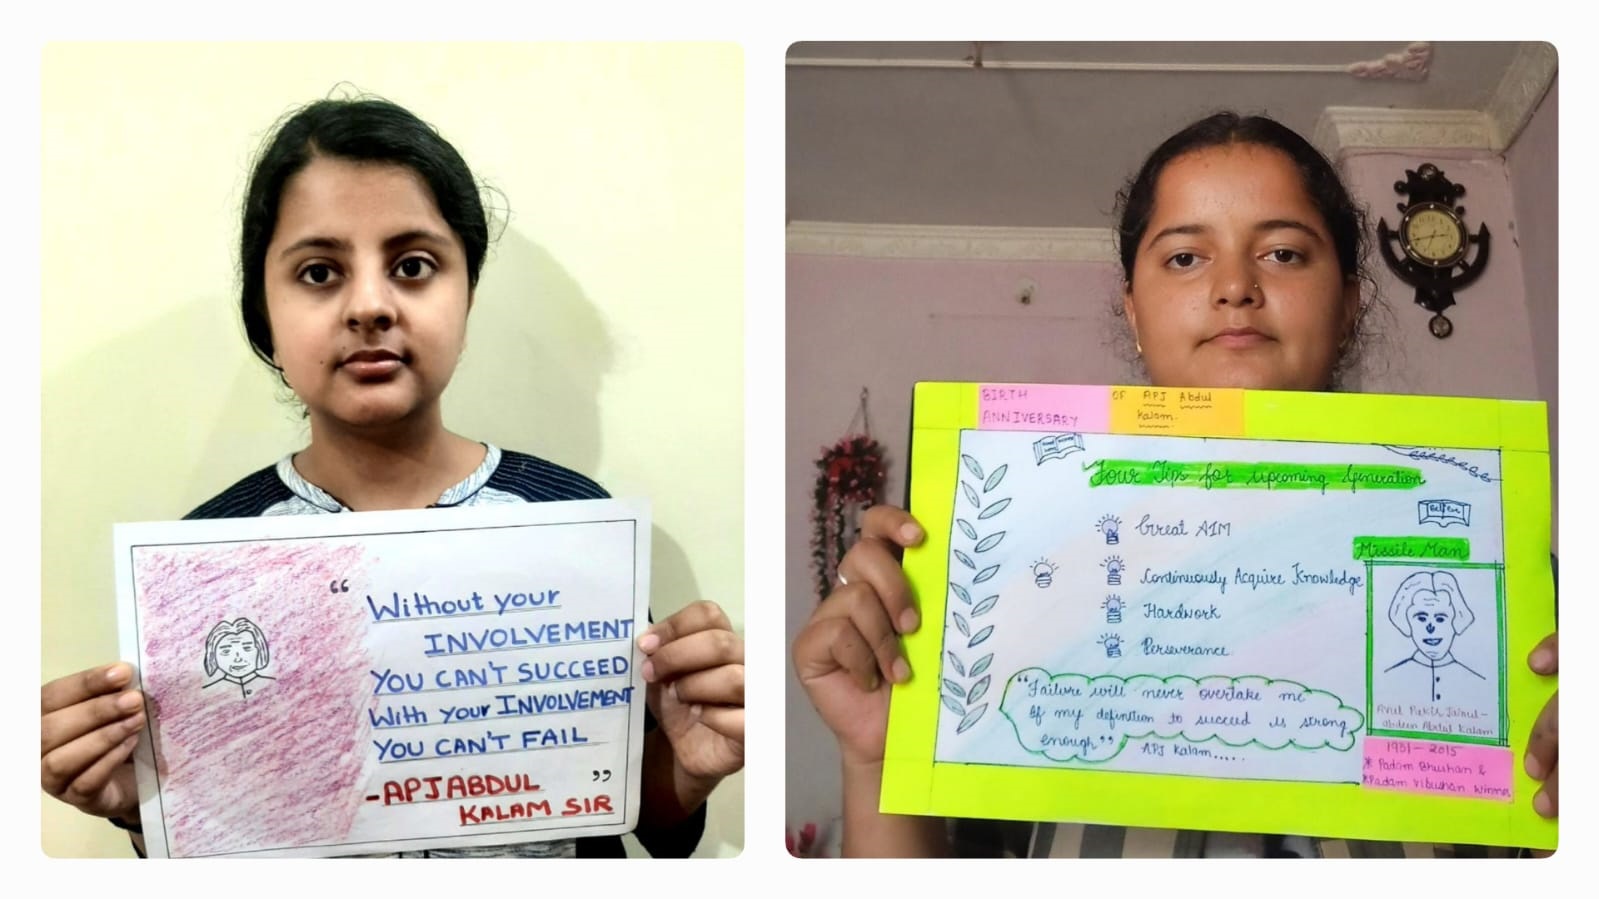 “ Without your
INVOLVEMENT
YOU CAN'T SUCCEED
With your INVOLVEMENT
YOU CAN'T FAIL
”
-APJ ABDUL
KALAM SIR
BIRTH
ANNIVERSARY
OF APJ Abdul
Kalam.
Four Tips for upcoming Generation
Believe
Great AIM
Missile Man
Continuously Acquire Knowledge
Hardwork
Perseverance
“Failure will never overtake me
If my definition to succeed is strong
enough”
APJ Kalam.....
Avul Pakir Jainul-
abdeen Abdul Kalam
1931-2015
* Padam Bhushan &
* Padam Vibushan Winner